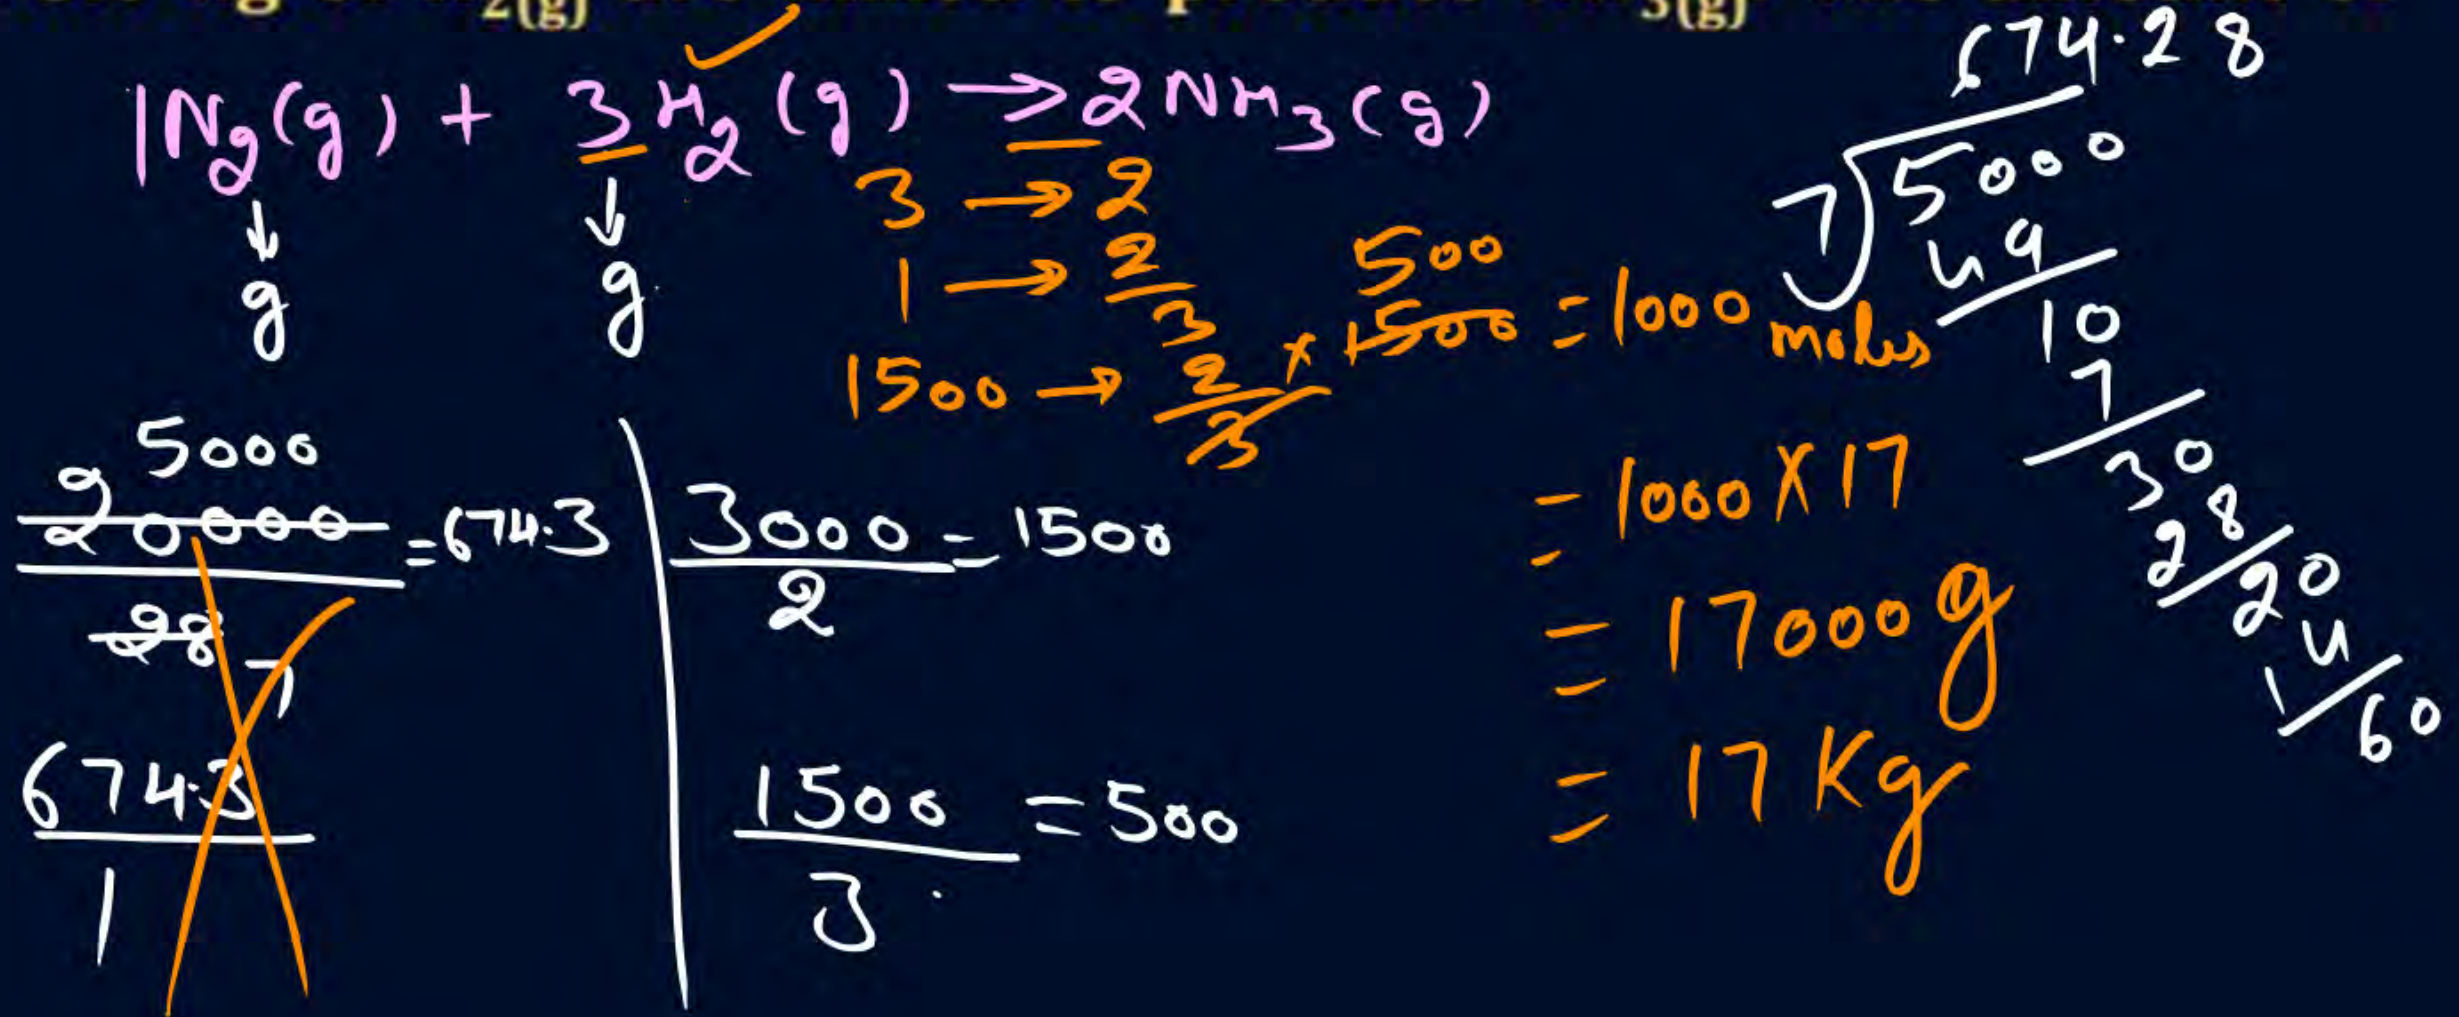 2(g)
3(g)
1N2(g) + 3H2(g) → 2NH3(g)
g
g
3 → 2
1 → 2/3
1500 → 2/3 × 1500 = 1000 moles
500
= 1000 X 17
= 17000 g
= 17 Kg
5000
20000/28 = 674.3
7
674.3/1
3000/2 = 1500
1500/3 = 500
674.28
7)5000
49
10
7
30
28
20
14
60